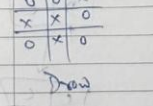 x x o
o x o
Draw